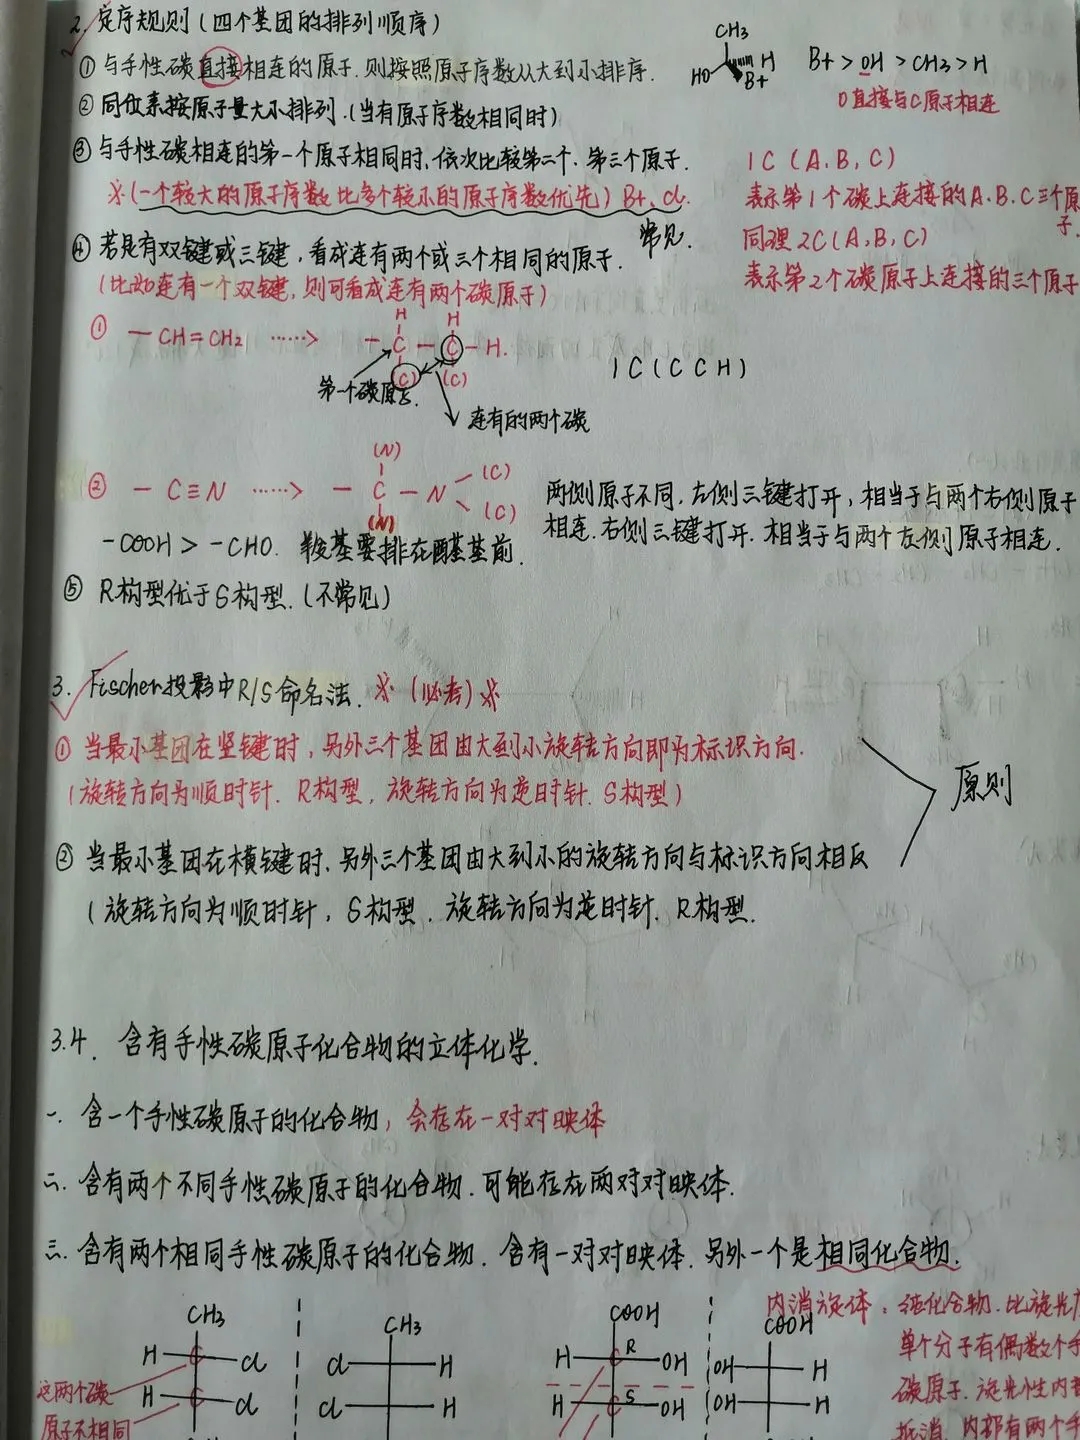 2. 定序规则(四个基团的排列顺序)
① 与手性碳直接相连的原子.则按照原子序数从大到小排序.
② 同位素按原子量大小排列.(当有原子序数相同时)
③ 与手性碳相连的第一个原子相同时,依次比较第二个.第三个原子.
※(一个较大的原子序数比多个较小的原子序数优先)Br、Cl.
常见.
④ 若是有双键或三键,看成连有两个或三个相同的原子.
(比如连有一个双键,则可看成连有两个碳原子)
CH3
HO
H
Br
Br > OH > CH3 > H
O直接与C原子相连
1C(A,B,C)
表示第1个碳上连接的A.B.C三个原子.
同理2C(A,B,C)
表示第2个碳原子上连接的三个原子
① —CH=CH2 ······>
H H
—C—C—H.
(C) (C)
第一个碳原子.
连有的两个碳
1C(CCH)
② —C≡N ······>
(N)
—C—N
(C)
(C)
(N)
两侧原子不同.左侧三键打开,相当于与两个右侧原子
相连.右侧三键打开.相当于与两个左侧原子相连.
-COOH > -CHO. 羧基要排在醛基前.
⑤ R构型优于S构型.(不常见)
3. Fischer投影中R/S命名法. ※(必考)※
① 当最小基团在竖键时,另外三个基团由大到小旋转方向即为标识方向.
(旋转方向为顺时针.R构型,旋转方向为逆时针.S构型)
② 当最小基团在横键时.另外三个基团由大到小的旋转方向与标识方向相反
(旋转方向为顺时针,S构型.旋转方向为逆时针.R构型.
原则
3.4. 含有手性碳原子化合物的立体化学.
一. 含一个手性碳原子的化合物,会存在一对对映体
二. 含有两个不同手性碳原子的化合物.可能存在两对对映体.
三. 含有两个相同手性碳原子的化合物.含有一对对映体.另外一个是相同化合物.
CH3
H C Cl
H C Cl
这两个碳
原子不相同
CH3
Cl H
Cl H
COOH
H C R OH
H C S OH
COOH
OH H
OH H
内消旋体:纯化合物.比旋光
单个分子有偶数个手
碳原子.旋光性内部
抵消.内部有两个手